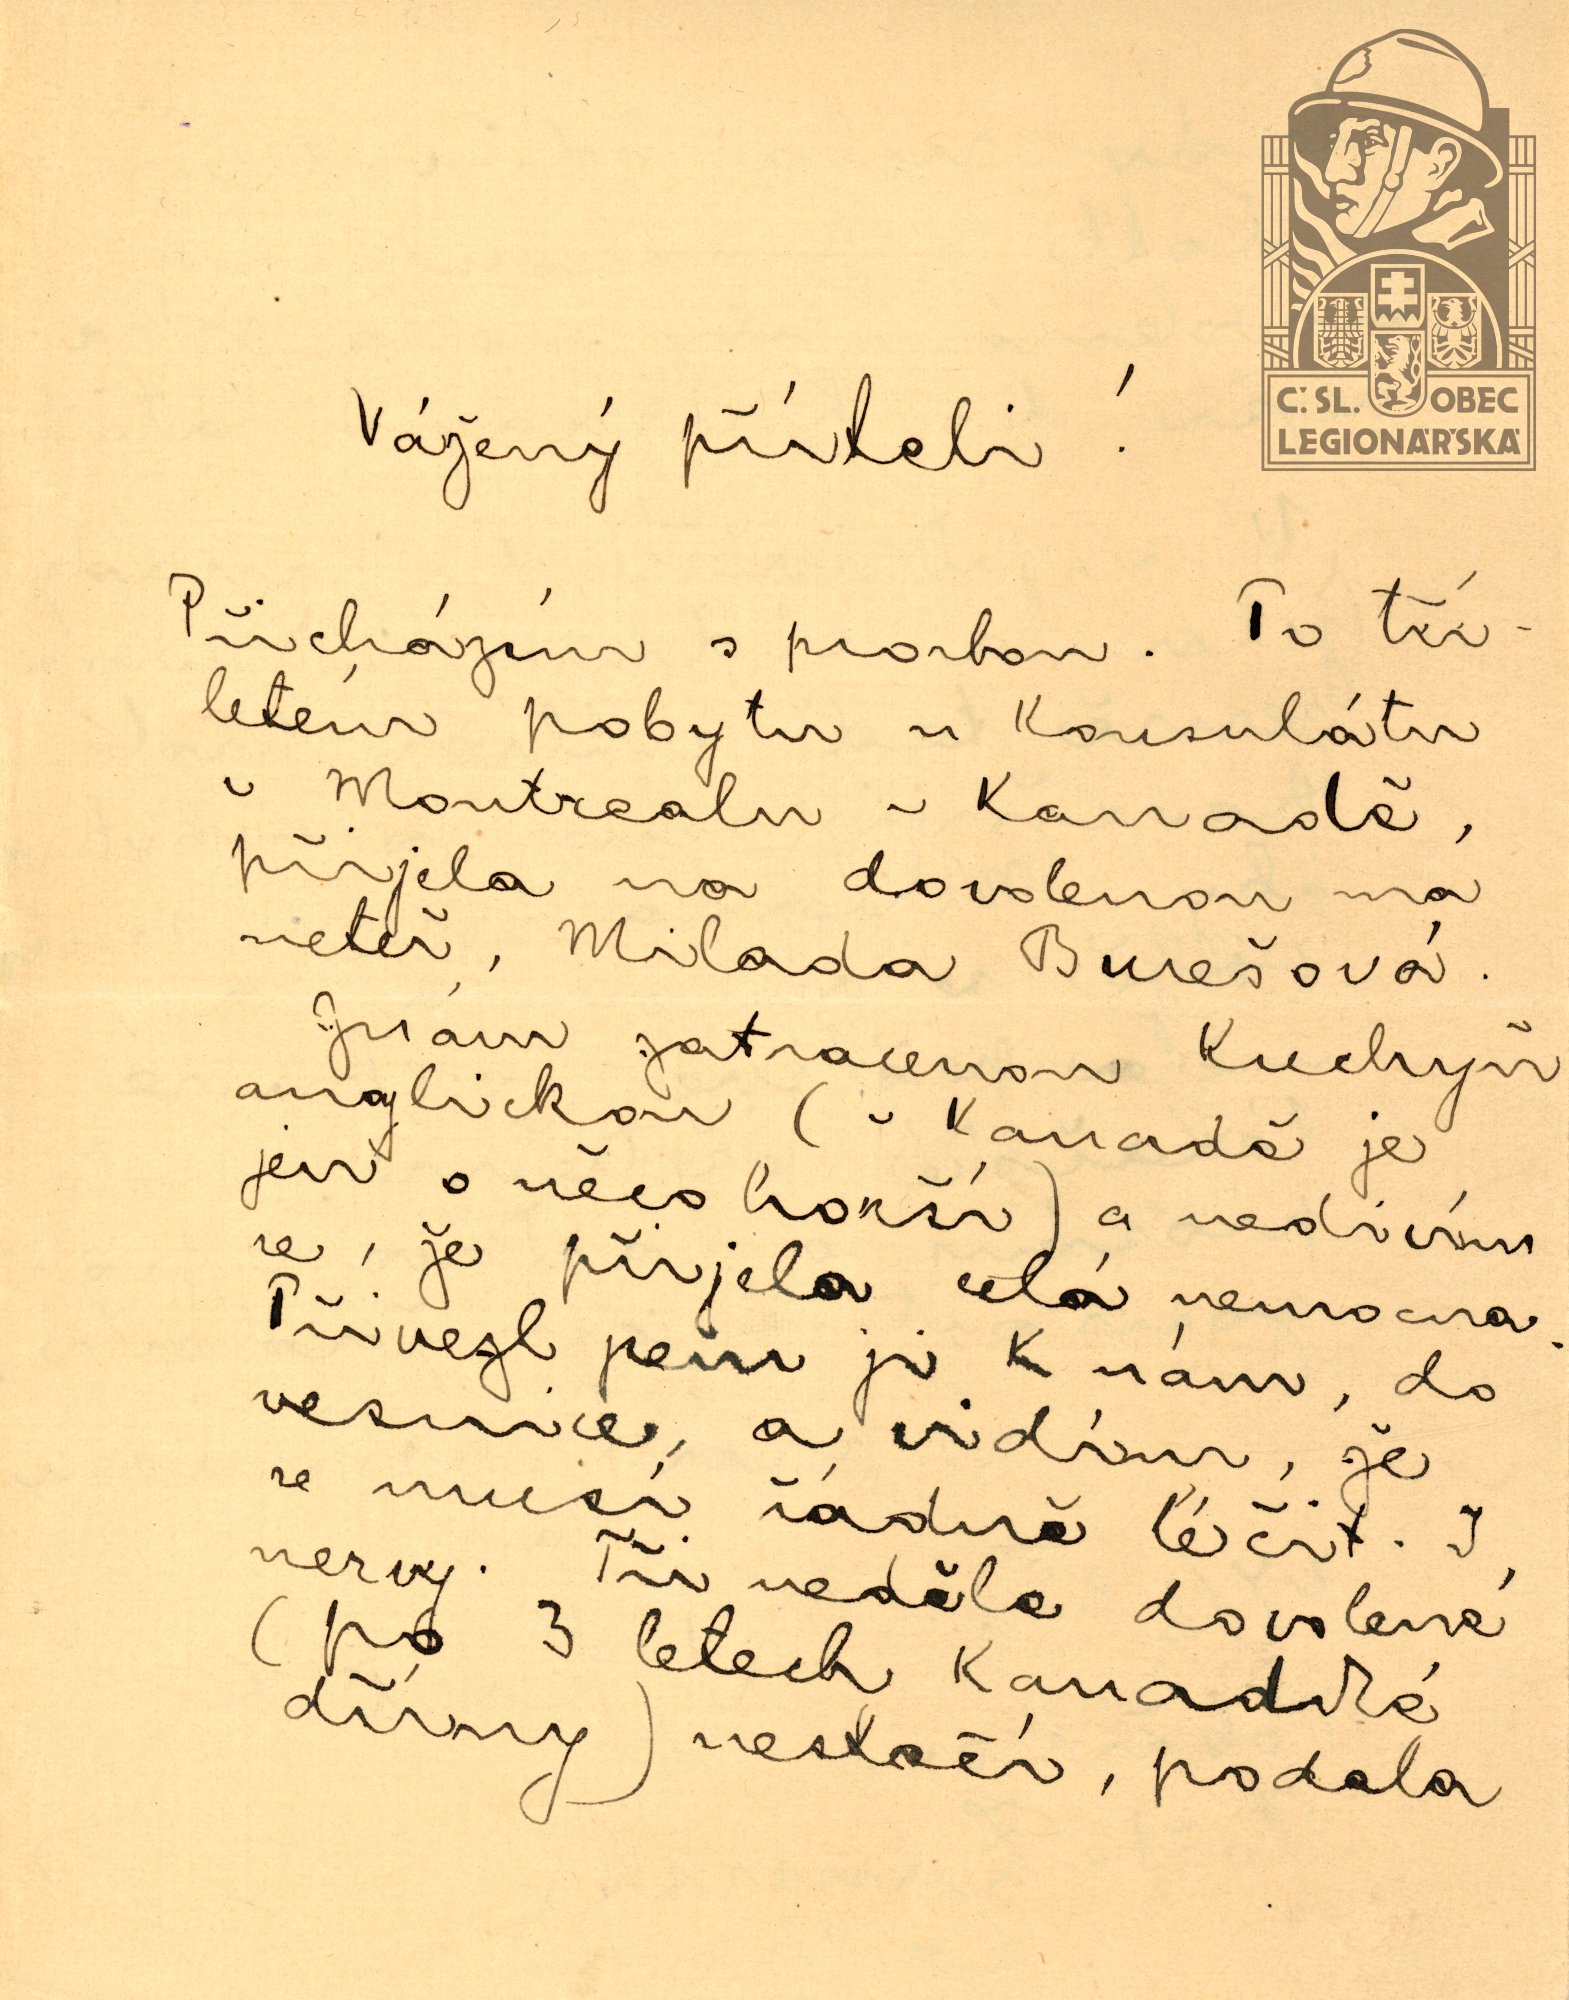 Č.SL. OBEC
LEGIONÁŘSKÁ
Vážený příteli!
Přicházím s prosbou. Po tří-
letém pobytu u Konsulátu
v Montrealu v Kanadě,
přijela na dovolenou má
neteř, Milada Burešová.
Znám zatracenou Kuchyň
anglickou (v Kanadě je
jen o něco horší) a nedivím
se, že přijela celá nemocna.
Přivezl jsem ji K nám, do
vesnice, a vidím, že
se musí řádně léčit. I
nervy. Tři neděle dovolené
(po 3 letech Kanadské
dřiny) nestačí, podala